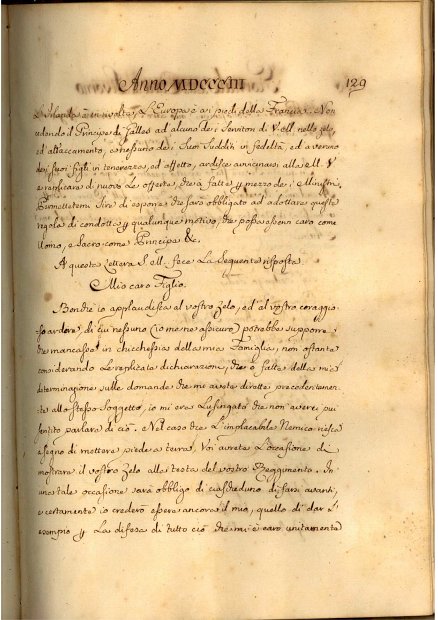 Anno MDCCCIII 129
L'Irlanda è in rivolta, L'Europa è a' piedi della Francia. Non
cedendo il Principe di Galles ad alcuno de i Servitori di V. M. nello zelo,
ed attaccamento, a nessuno dei Suoi Sudditi in fedeltà, ed a veruno
dei suoi figli in tenerezza, ed affetto, ardisce avvicinarsi alla M. V.
e replicare di nuovo le offerte, che à fatte p mezzo de i Ministri,
Permettetemi Sire di esporre che sarò obbligato ad adottare questa
regola di condotta p qualunque motivo, che possa essermi caro come
Uomo, e Sacro come Principe &c.
A questa Lettera S. M. fece La Seguente risposta
Mio caro Figlio.
Bonchè io applaudisca al vostro Zelo, ed al vostro coraggio,
so ardore, di cui nessuno (io me ne assicuro) potrebbe supporre
che mancasse in chicchessia della mia Famiglia, non ostante
considerando Le replicate dichiarazioni, che ò fatte della mia
determinazione sulle domande che mi avete dirette precedentemen-
te allo stesso Soggetto, io mi era Lusingato che non averei più
sentito parlare di ciò. Nel caso che L'implacabile Nemico riesca
a segno di mettere piede a terra, Voi avrete L'occasione di
mostrare il vostro Zelo alla testa del vostro Reggimento. In
una tale occasione sarà obbligo di ciascheduno di farsi avanti,
e certamente io crederò essere ancora il mio, quello di dar L'
esempio p La difesa di tutto ciò che mi è caro unitamente